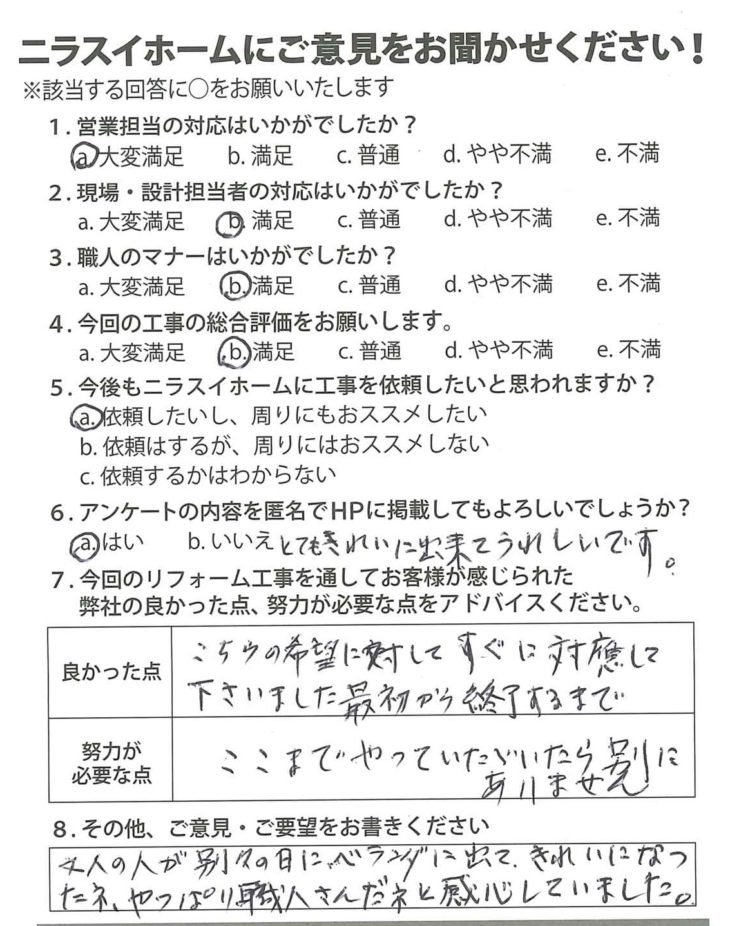 ニラスイホームにご意見をお聞かせください！
※該当する回答に○をお願いいたします
1．営業担当の対応はいかがでしたか？
a. 大変満足 b. 満足 c. 普通 d. やや不満 e. 不満
2．現場・設計担当者の対応はいかがでしたか？
a. 大変満足 b. 満足 c. 普通 d. やや不満 e. 不満
3．職人のマナーはいかがでしたか？
a. 大変満足 b. 満足 c. 普通 d. やや不満 e. 不満
4．今回の工事の総合評価をお願いします。
a. 大変満足 b. 満足 c. 普通 d. やや不満 e. 不満
5．今後もニラスイホームに工事を依頼したいと思われますか？
a. 依頼したいし、周りにもおススメしたい
b. 依頼はするが、周りにはおススメしない
c. 依頼するかはわからない
6．アンケートの内容を匿名でHPに掲載してもよろしいでしょうか？
a. はい b. いいえ とてもきれいに出来てうれしいです。
7．今回のリフォーム工事を通してお客様が感じられた
弊社の良かった点、努力が必要な点をアドバイスください。
良かった点
こちらの希望に対してすぐに対應して
下さいました最初から終了するまで
努力が
必要な点
ここまでやっていただいたら別に
ありません
8．その他、ご意見・ご要望をお書きください
人の人が別々の日にベランダに出て、きれいになっ
たネ、やっぱり職人さんだネと感心していました。